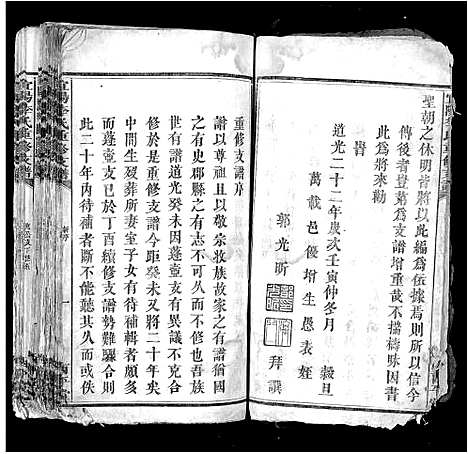 聖朝之休明皆將以此編為依據焉則所以信今
傳後者豈第為支譜增重哉不揣檮昧因書
此為將來勸
旹
道光二十二年歲次壬寅仲冬月　穀旦
萬載邑優增生愚表姪
郭光昕
拜譔
重修支譜序
譜以尊祖且以敬宗收族故家之有譜猶國
之有史郡縣之有志不可久而不修也吾族
世有譜道光癸未因蓬壼支有異議不克合
修於是重修支譜今距癸未又將二十年矣
中間生歿葬所妻室子女有待輯者頗多
而蓬壼支已於丁酉續修支譜勢難驟合則
此二十年內待補者斷不能聽其久而或佚
宜陽李氏重修支譜
序
一